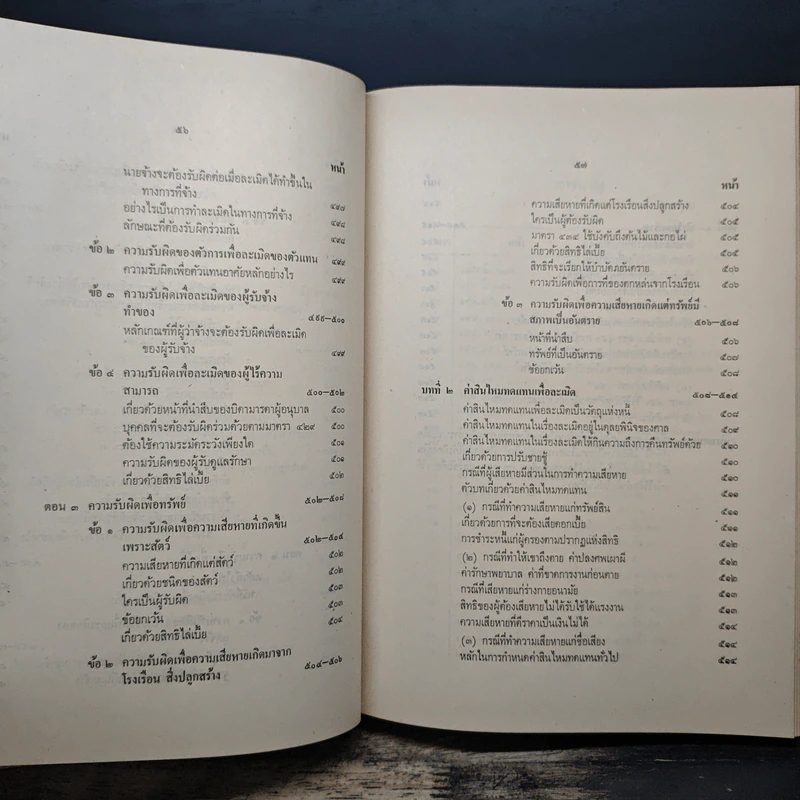 ๕๖
หน้า
นายจ้างจะต้องรับผิดต่อเมื่อละเมิดได้ทำขึ้นใน
ทางการที่จ้าง ๔๙๗
อย่างไรเป็นการทำละเมิดในทางการที่จ้าง ๔๙๘
ลักษณะที่ต้องรับผิดร่วมกัน ๔๙๘
ข้อ ๒ ความรับผิดของตัวการเพื่อละเมิดของตัวแทน ๔๙๙
ความรับผิดเพื่อตัวแทนอาศัยหลักอย่างไร ๔๙๙
ข้อ ๓ ความรับผิดเพื่อละเมิดของผู้รับจ้าง
ทำของ ๔๙๙—๕๐๑
หลักเกณฑ์ที่ผู้ว่าจ้างจะต้องรับผิดเพื่อละเมิด
ของผู้รับจ้าง ๔๙๙
ข้อ ๔ ความรับผิดเพื่อละเมิดของผู้ไร้ความ
สามารถ ๕๐๐—๕๐๒
เกี่ยวด้วยหน้าที่นำสืบของบิดามารดาผู้อนุบาล ๕๐๐
บุคคลที่จะต้องรับผิดร่วมด้วยตามมาตรา ๔๒๙ ๕๐๐
ต้องใช้ความระมัดระวังเพียงใด ๕๐๑
ความรับผิดของผู้รับดูแลรักษา ๕๐๑
เกี่ยวด้วยสิทธิไล่เบี้ย ๕๐๒
ตอน ๓ ความรับผิดเพื่อทรัพย์ ๕๐๒—๕๐๘
ข้อ ๑ ความรับผิดเพื่อความเสียหายที่เกิดขึ้น
เพราะสัตว์ ๕๐๒—๕๐๔
ความเสียหายที่เกิดแต่สัตว์ ๕๐๒
เกี่ยวด้วยชนิดของสัตว์ ๕๐๓
ใครเป็นผู้รับผิด ๕๐๓
ข้อยกเว้น ๕๐๔
เกี่ยวด้วยสิทธิไล่เบี้ย
ข้อ ๒ ความรับผิดเพื่อความเสียหายเกิดมาจาก
โรงเรือน สิ่งปลูกสร้าง ๕๐๔—๕๐๖
๕๗
หน้า
ความเสียหายที่เกิดแต่โรงเรือนสิ่งปลูกสร้าง ๕๐๔
ใครเป็นผู้ต้องรับผิด ๕๐๕
มาตรา ๔๓๔ ใช้บังคับถึงต้นไม้และกอไผ่ ๕๐๕
เกี่ยวด้วยสิทธิไล่เบี้ย
สิทธิที่จะเรียกให้บำบัดภยันตราย ๕๐๖
ความรับผิดเพื่อการที่ของตกหล่นจากโรงเรือน ๕๐๖
ข้อ ๓ ความรับผิดเพื่อความเสียหายเกิดแต่ทรัพย์มี
สภาพเป็นอันตราย ๕๐๖—๕๐๘
หน้าที่นำสืบ ๕๐๖
ทรัพย์ที่เป็นอันตราย ๕๐๗
ข้อยกเว้น ๕๐๘
บทที่ ๒ ค่าสินไหมทดแทนเพื่อละเมิด ๕๐๘—๕๑๔
ค่าสินไหมทดแทนเพื่อละเมิดเป็นวัตถุแห่งหนี้ ๕๐๘
ค่าสินไหมทดแทนในเรื่องละเมิดอยู่ในดุลยพินิจของศาล ๕๐๙
ค่าสินไหมทดแทนในเรื่องละเมิดให้กินความถึงการคืนทรัพย์ด้วย ๕๑๐
เกี่ยวด้วยการปรับชายชู้ ๕๑๐
กรณีที่ผู้เสียหายมีส่วนในการทำความเสียหาย ๕๑๐
ตัวบทเกี่ยวด้วยค่าสินไหมทดแทน ๕๑๑
(๑) กรณีที่ทำความเสียหายแก่ทรัพย์สิน
เกี่ยวด้วยการที่จะต้องเสียดอกเบี้ย ๕๑๑
การชำระหนี้แก่ผู้ครองตามปรากฏแห่งสิทธิ ๕๑๒
(๒) กรณีที่ทำให้เขาถึงตาย ค่าปลงศพเผาผี
ค่ารักษาพยาบาล ค่าที่ขาดการงานก่อนตาย ๕๑๒
กรณีที่เสียหายแก่ร่างกายอนามัย ๕๑๓
สิทธิของผู้ต้องเสียหายไม่ได้รับใช้ได้แรงงาน ๕๑๓
ความเสียหายที่ตีราคาเป็นเงินไม่ได้ ๕๑๔
(๓) กรณีที่ทำความเสียหายแก่ชื่อเสียง ๕๑๔
หลักในการกำหนดค่าสินไหมทดแทนทั่วไป ๕๑๔